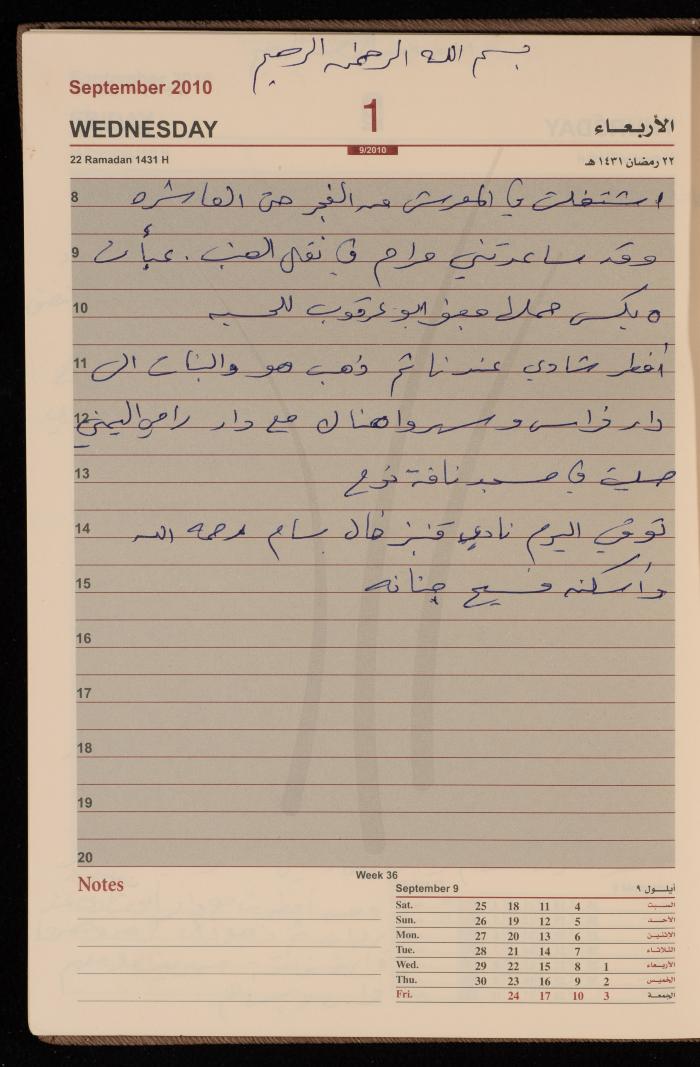 بسم الله الرحمن الرحيم
September 2010
1
WEDNESDAY
الأربعـاء
9/2010
22 Ramadan 1431 H
٢٢ رمضان ١٤٣١ هـ
8 اشتغلت في المعرش من الفجر حتى العاشره
9 وقد ساعدتني مرام في نقل العنب . عبأت
10 ٥ بكس حملها ابو عرقوب للحسبه
11 أفطر شادي عندنا ثم ذهب هو والبنات الى
12 دار فراس وسهروا هناك مع دار رامي اليمني
13 صليت في مسجد نافة نوح
14 توفي اليوم نادي قنيز خال بسام رحمه الله
15 وأسكنه فسيح جنانه
16
17
18
19
20
Notes
Week 36
September 9
أيلــول ٩
Sat. 25 18 11 4 السبت
Sun. 26 19 12 5 الأحـد
Mon. 27 20 13 6 الاثنين
Tue. 28 21 14 7 الثلاثاء
Wed. 29 22 15 8 1 الأربعاء
Thu. 30 23 16 9 2 الخميس
Fri. 24 17 10 3 الجمعة